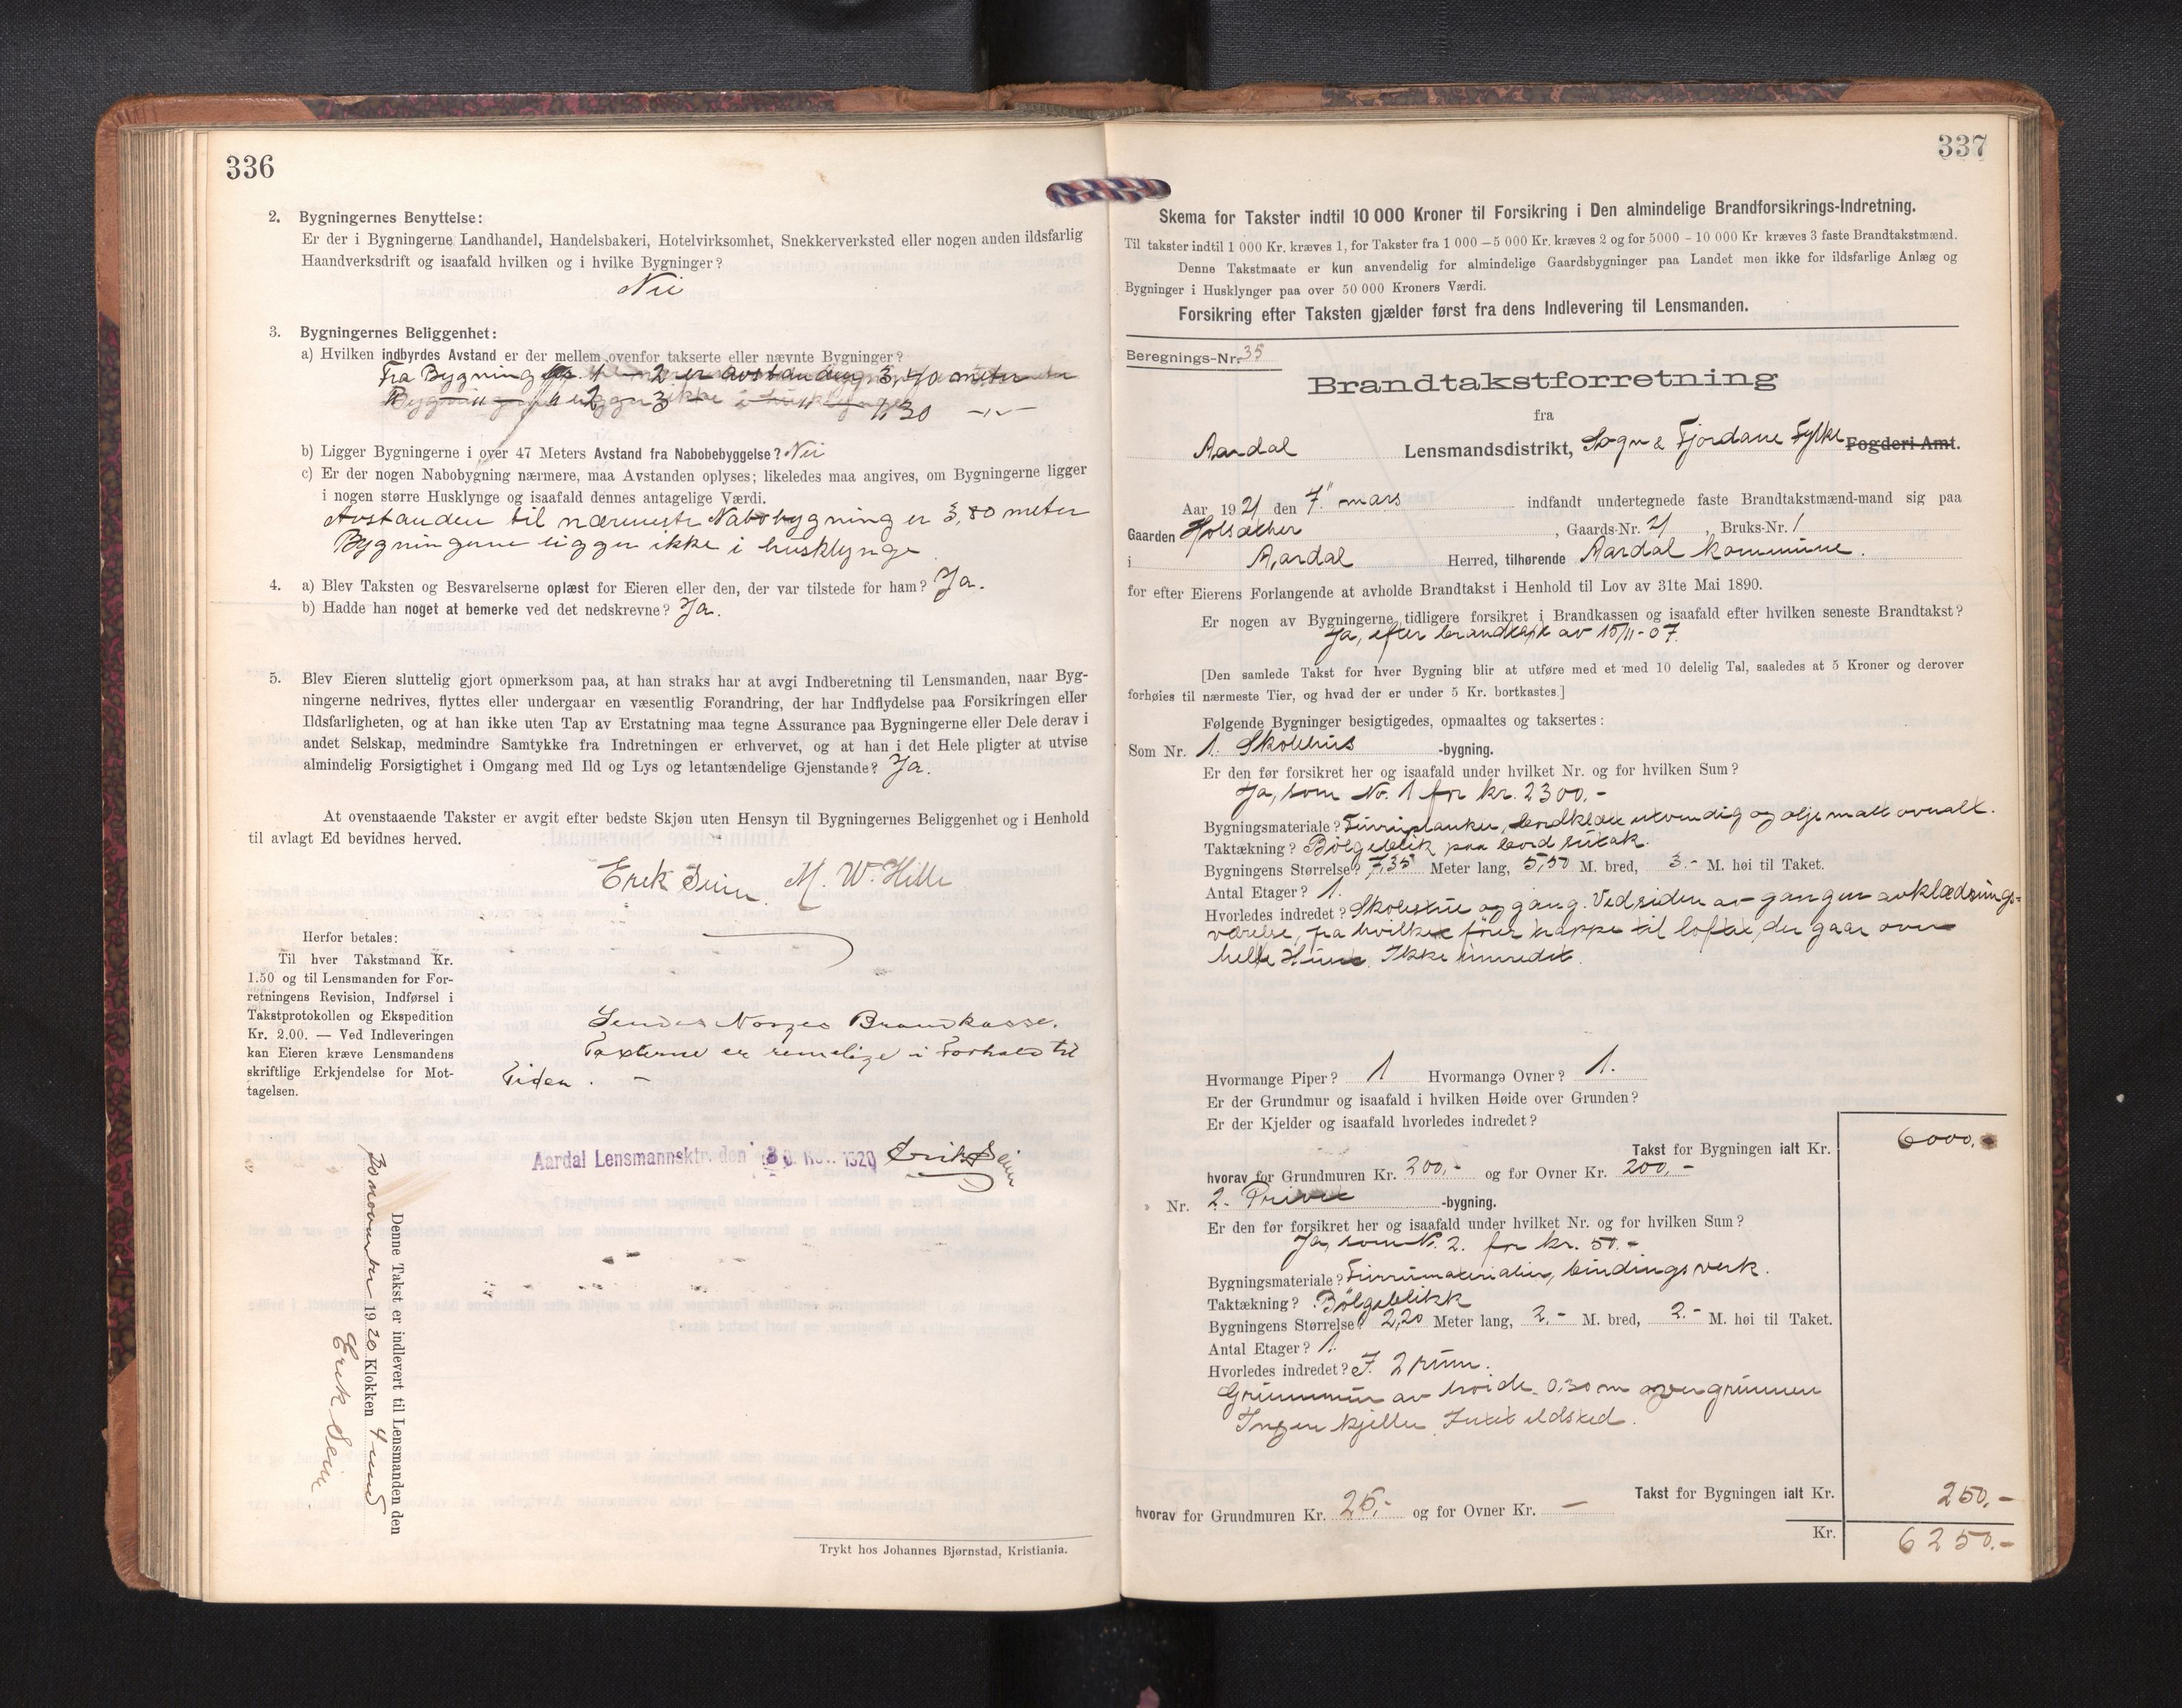 336
2. Bygningernes Benyttelse:
Er der i Bygningerne Landhandel, Handelsbakeri, Hotelvirksomhet, Snekkerverksted eller nogen anden ildsfarlig
Haandverksdrift og isaafald hvilken og i hvilke Bygninger?
Nei
3. Bygningernes Beliggenhet:
a) Hvilken indbyrdes Avstand er der mellem ovenfor takserte eller nævnte Bygninger?
Fra Bygning 1 – 2 er avstanden 3,40 meter
" 2 3 " 1,30 –"–
b) Ligger Bygningerne i over 47 Meters Avstand fra Nabobebyggelse? Nei
c) Er der nogen Nabobygning nærmere, maa Avstanden oplyses; likeledes maa angives, om Bygningerne ligger
i nogen større Husklynge og isaafald dennes antagelige Værdi.
Avstanden til nærmeste Nabobygning er 3,80 meter
Bygningerne ligger ikke i husklynge.
4. a) Blev Taksten og Besvarelserne oplæst for Eieren eller den, der var tilstede for ham? Ja.
b) Hadde han noget at bemerke ved det nedskrevne? Ja.
5. Blev Eieren sluttelig gjort opmerksom paa, at han straks har at avgi Indberetning til Lensmanden, naar Byg-
ningerne nedrives, flyttes eller undergaar en væsentlig Forandring, der har Indflydelse paa Forsikringen eller
Ildsfarligheten, og at han ikke uten Tap av Erstatning maa tegne Assurance paa Bygningerne eller Dele derav i
andet Selskap, medmindre Samtykke fra Indretningen er erhvervet, og at han i det Hele pligter at utvise
almindelig Forsigtighet i Omgang med Ild og Lys og letantændelige Gjenstande? Ja.
At ovenstaaende Takster er avgit efter bedste Skjøn uten Hensyn til Bygningernes Beliggenhet og i Henhold
til avlagt Ed bevidnes herved.
Erik Seim. M. W. Hille
Herfor betales:
Til hver Takstmand Kr.
1.50 og til Lensmanden for For-
retningens Revision, Indførsel i
Takstprotokollen og Ekspedition
Kr. 2.00. — Ved Indleveringen
kan Eieren kræve Lensmandens
skriftlige Erkjendelse for Mot-
tagelsen.
Sendes Norges Brandkasse.
Taxterne er rimelige i Forhold til
Tiden. –
Aardal Lensmannsktr. den 30. Nov. 1920 Erik Seim
Denne Takst er indlevert til Lensmanden den
30 november 1920 Klokken 4 emd
Erik Seim
Trykt hos Johannes Bjørnstad, Kristiania.
337
Skema for Takster indtil 10 000 Kroner til Forsikring i Den almindelige Brandforsikrings-Indretning.
Til takster indtil 1 000 Kr. kræves 1, for Takster fra 1 000 – 5 000 Kr. kræves 2 og for 5000 – 10 000 Kr kræves 3 faste Brandtakstmænd.
Denne Takstmaate er kun anvendelig for almindelige Gaardsbygninger paa Landet men ikke for ildsfarlige Anlæg og
Bygninger i Husklynger paa over 50 000 Kroners Værdi.
Forsikring efter Taksten gjælder først fra dens Indlevering til Lensmanden.
Beregnings-Nr. 35
Brandtakstforretning
fra
Aardal Lensmandsdistrikt, Sogn & Fjordane Fylke Fogderi Amt.
Aar 1921 den 7" mars indfandt undertegnede faste Brandtakstmænd-mand sig paa
Gaarden Holsæther, Gaards-Nr. 21, Bruks-Nr. 1
i Aardal Herred, tilhørende Aardal kommune.
for efter Eierens Forlangende at avholde Brandtakst i Henhold til Lov av 31te Mai 1890.
Er nogen av Bygningerne tidligere forsikret i Brandkassen og isaafald efter hvilken seneste Brandtakst?
Ja, efter brandtakst av 15/11-07.
[Den samlede Takst for hver Bygning blir at utføre med et med 10 delelig Tal, saaledes at 5 Kroner og derover
forhøies til nærmeste Tier, og hvad der er under 5 Kr. bortkastes.]
Følgende Bygninger besigtigedes, opmaaltes og taksertes:
Som Nr. 1. Skolehus -bygning.
Er den før forsikret her og isaafald under hvilket Nr. og for hvilken Sum?
Ja, som No. 1 for kr. 2300.-
Bygningsmateriale? Furuplanker, bordklædt utvendig og oljemalt overalt.
Taktækning? Bølgeblik paa bord sutak.
Bygningens Størrelse? 7,35 Meter lang, 5,50 M. bred, 3.- M. høi til Taket.
Antal Etager? 1.
Hvorledes indredet? Skolestue og gang. Ved siden av gangen avklædnings-
værelse, fra hvilket fører trappe til loftet, der gaar over
hele Huset. Ikke innredet.
Hvormange Piper? 1 Hvormange Ovner? 1.
Er der Grundmur og isaafald i hvilken Høide over Grunden?
Er der Kjelder og isaafald hvorledes indredet?
Takst for Bygningen ialt Kr. 6000.-
hvorav for Grundmuren Kr. 200.- og for Ovner Kr. 200.-
Nr. 2. Privet -bygning.
Er den før forsikret her og isaafald under hvilket Nr. og for hvilken Sum?
Ja, som No. 2. for kr. 50.-
Bygningsmateriale? Furumaterialer, bindingsverk.
Taktækning? Bølgeblikk
Bygningens Størrelse? 2,20 Meter lang, 2.- M. bred, 2.- M. høi til Taket.
Antal Etager? 1.
Hvorledes indredet? I 2 rum.
Grunnmur av høide 0.30 m over grunnen
Ingen kjeller. Intet ildsted.
Takst for Bygningen ialt Kr. 250.-
hvorav for Grundmuren Kr. 25.- og for Ovner Kr. —
Kr. 6250.-